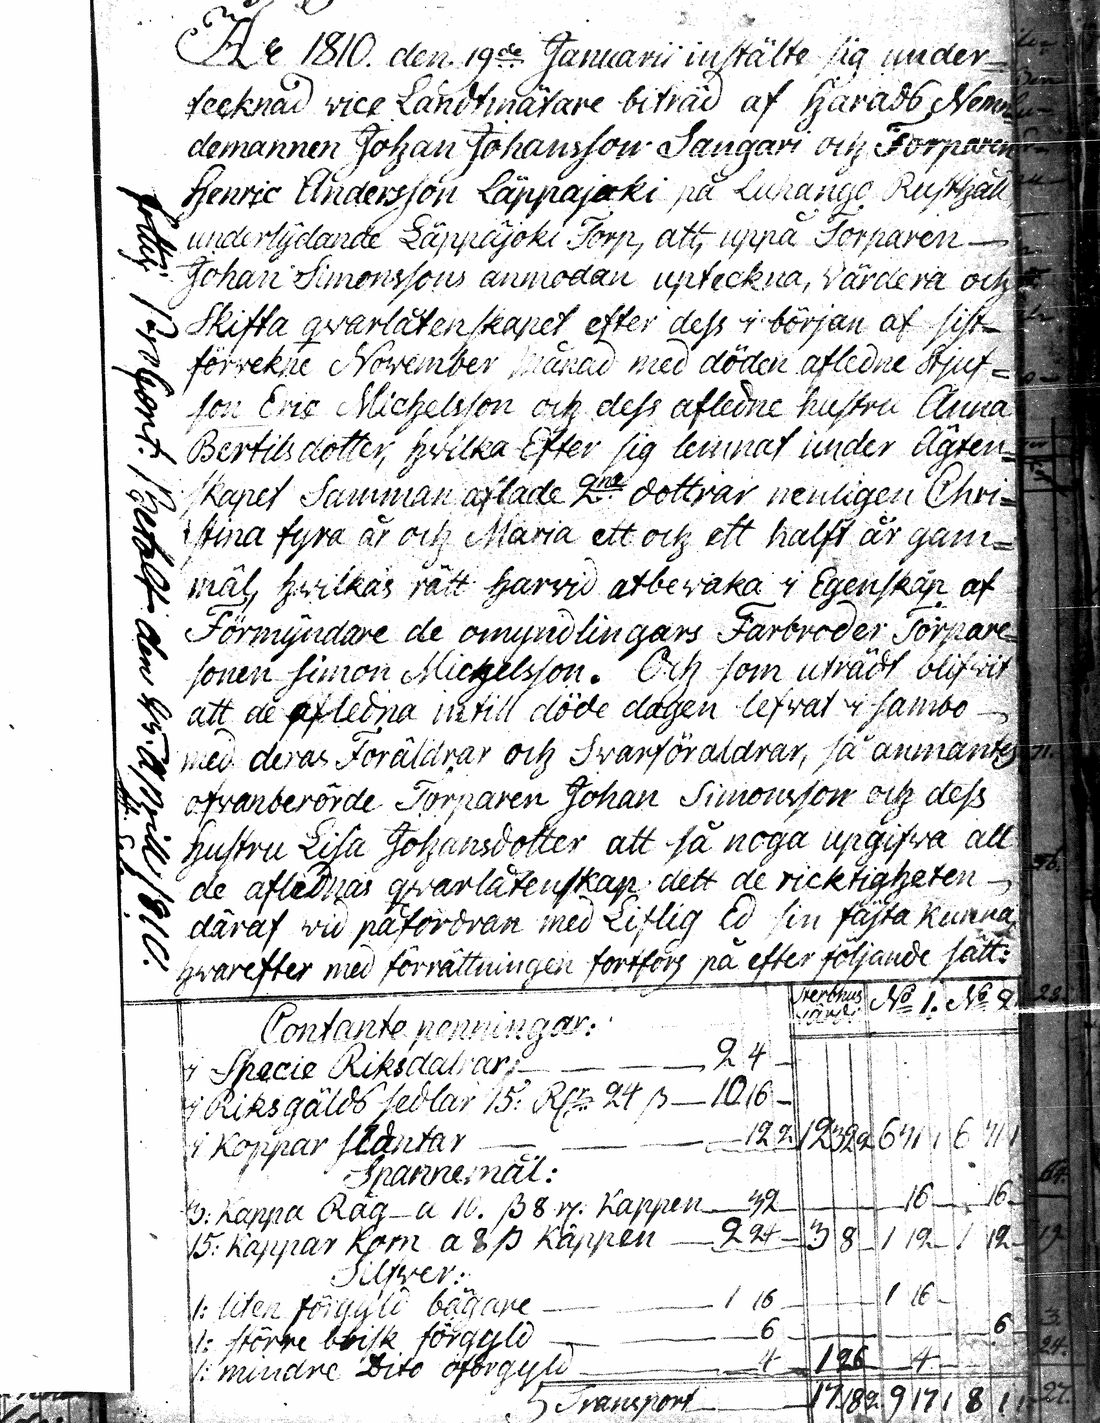 År 1810. den 19de Januarii instälte sig under-
tecknad vice Landtmätare biträd af Härads Nemn-
demannen Johan Johansson Saugari och Torparen
Henric Andersson Läppäjoki på Luhango Rusthåll
underlydande Läppäjoki Torp, att, uppå Torparen
Johan Simonssons anmodan upteckna, värdera och
Skifta qvarlåtenskapet efter dess i början af sist-
förrekne November månad med döden afledne Stjuf=
son Eric Michelsson och dess afledne hustru Anna
Bertilsdotter, hvilka Efter sig lemnat under Ägten=
skapet Samman aflade 2ne döttrar nemligen Chri=
stina fyra år och Maria ett och ett halft år gam=
mal, hvilkas rätt härvid at bevaka i Egenskap af
Förmyndare de omyndlingars Farbroder Torpare=
sonen Simon Michelsson. Och som utrådt blifvit
att de afledna intill döde dagen lefvat i sambo
med deras Föräldrar och Svärföräldrar, så anmantes
ofvanberörde Torparen Johan Simonsson och dess
hustru Lisa Johansdotter att så noga upgifva all
de aflednas qvarlåtenskap dett de ricktigheten
däraf vid påfordran med Liflig Ed sin fästa kunna,
hvarefter med förrättningen fortförs på efter följande sätt:
den April 1810.
Sterbhus värde No 1. No 2
Contante penningar:
i Specie Riksdalrar 2 4 -
i Riksgälds sedlar 15: Rdr 24 ß 10 16 -
i Koppar slantar - 12 2. 12 32 2 6 6
Spannemål:
3: Kappa Råg a 10. ß 8 r: Kappen 32 16 16
15: Kappar Korn a 8 ß Kappen 2 24 - 3 8 - 1 12 - 1 12 -
Silfver:
1: liten förgyld bägare 1 16 - 1 16 -
1: större brisk förgyld 6 - 6
1: mindre Dito oförgyld 4 1 26 4
Transport 17 18 2 9 17 1 8 1 1